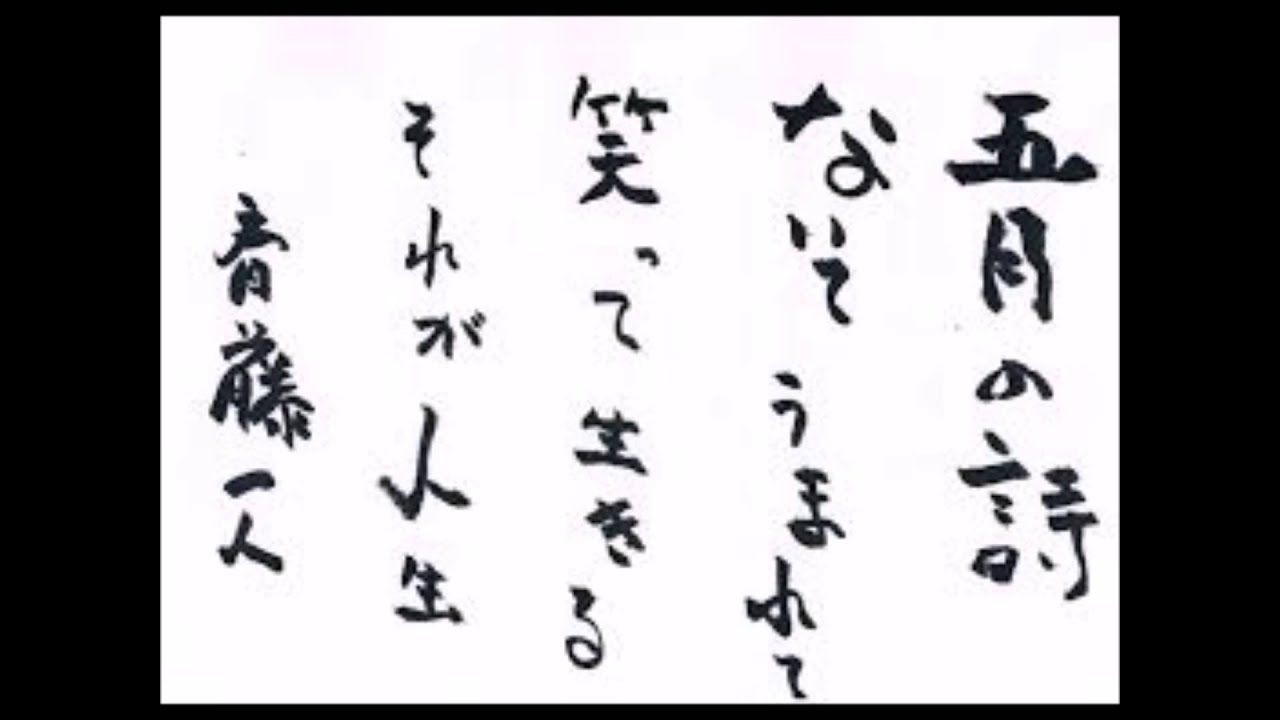 五月の詩
ないてうまれて
笑って生きる
それが人生
斉藤一人